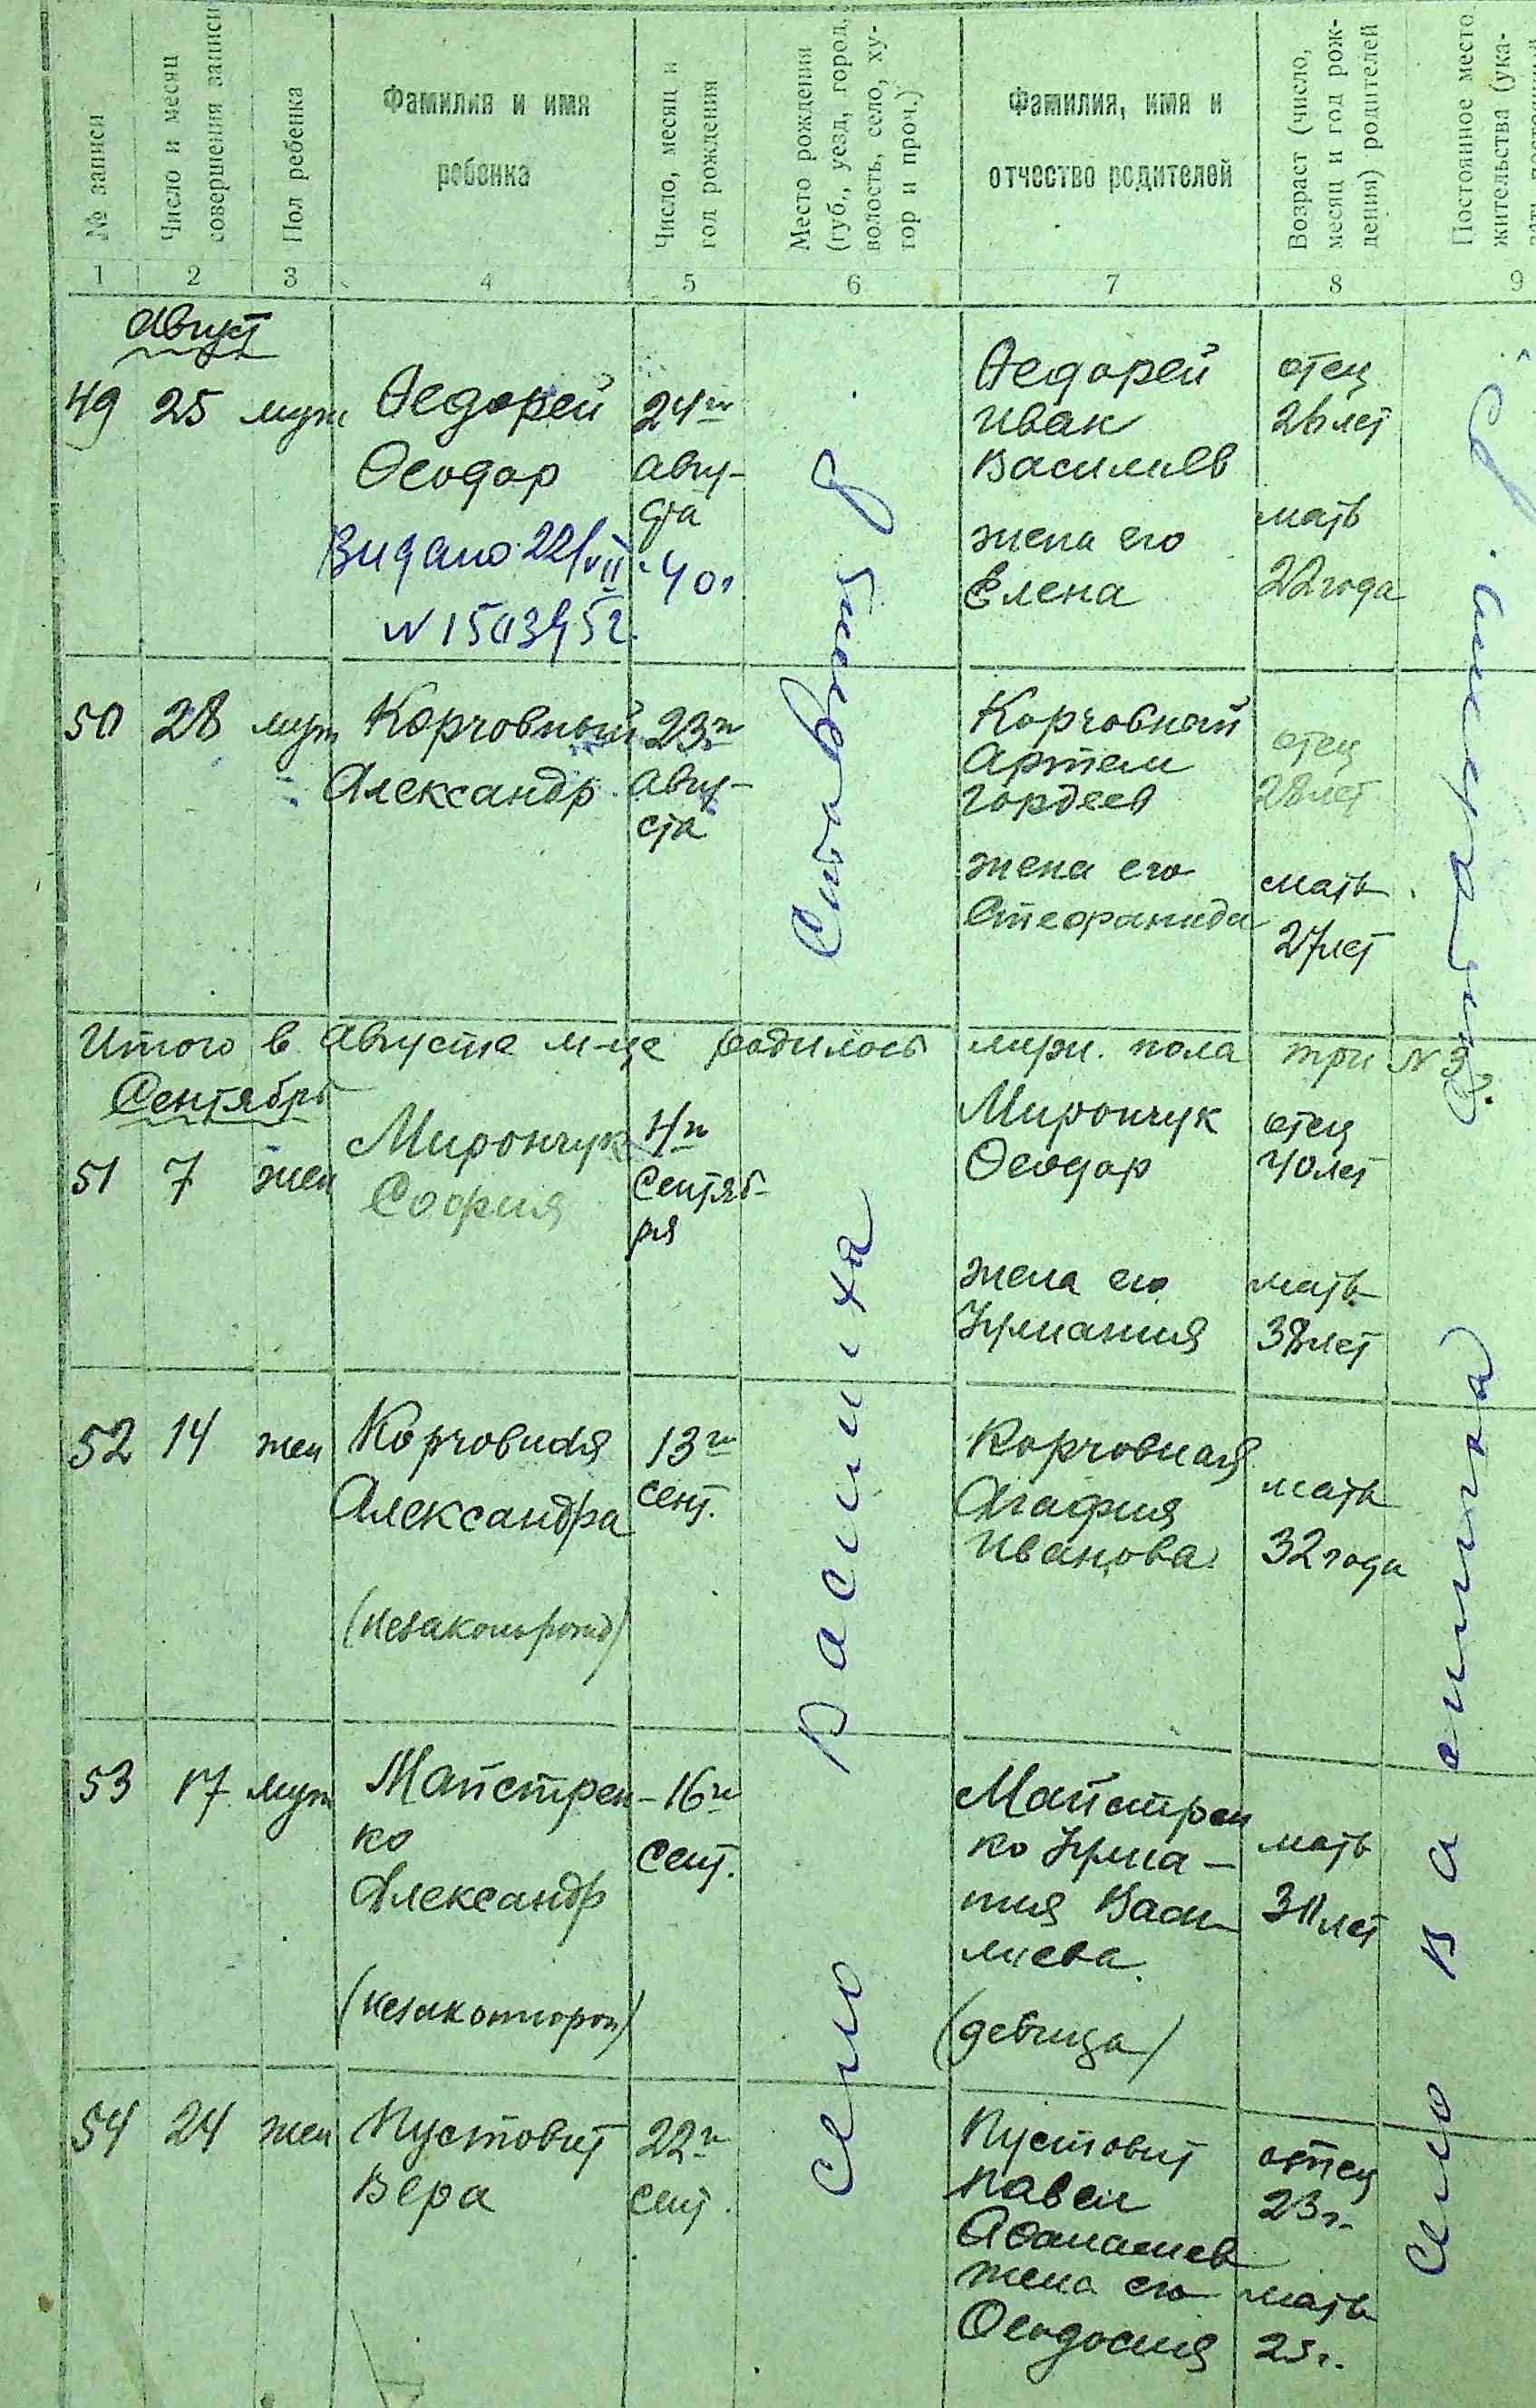 № записи
Число и месяц
совершения записи
Пол ребенка
Фамилия и имя
ребенка
Число, месяц и
год рождения
Место рождения
(губ., уезд, город,
волость, село, ху-
тор и проч.)
Фамилия, имя и
отчество родителей
Возраст (число,
месяц и год рож-
дения) родителей
Постоянное место
жительства (ука-
1 2 3 4 5 6 7 8 9
Август
49 25 муж
Ѳедорей
Ѳеодор
Видано 22/VII
24го
авгу-
ста
40г
Ѳедорей
Иван
Василиев
жена его
Елена
отец
26 лет
мать
22 года
50 28 муж
Корчовный
Александр
23го
авгу-
ста
Корчовный
Артем
Гордеев
жена его
Стефанида
отец
28 лет
мать
27 лет
Итого в августе м-це родилось муж. пола три № 3
Сентябрь
51 7 жен
Мирончук
София
4го
сентяб-
ря
Мирончук
Ѳеодор
жена его
отец
40 лет
мать
38 лет
52 14 жен
Корчовная
Александра
(незаконорожд)
13го
сент.
Корчовная
Агафия
Иванова
мать
32 года
53 17 муж
Майстрен-
ко
Александр
(незаконнорож)
16го
сент.
Майстрен
ко
Васи
лиева
(девица)
мать
30 лет
54 24 жен
Пустовит
Вера
22го
сент.
Пустовит
Павел
Афанасиев
жена его
Ѳеодосия
отец
23 г.
мать
23 г.
Село
Село